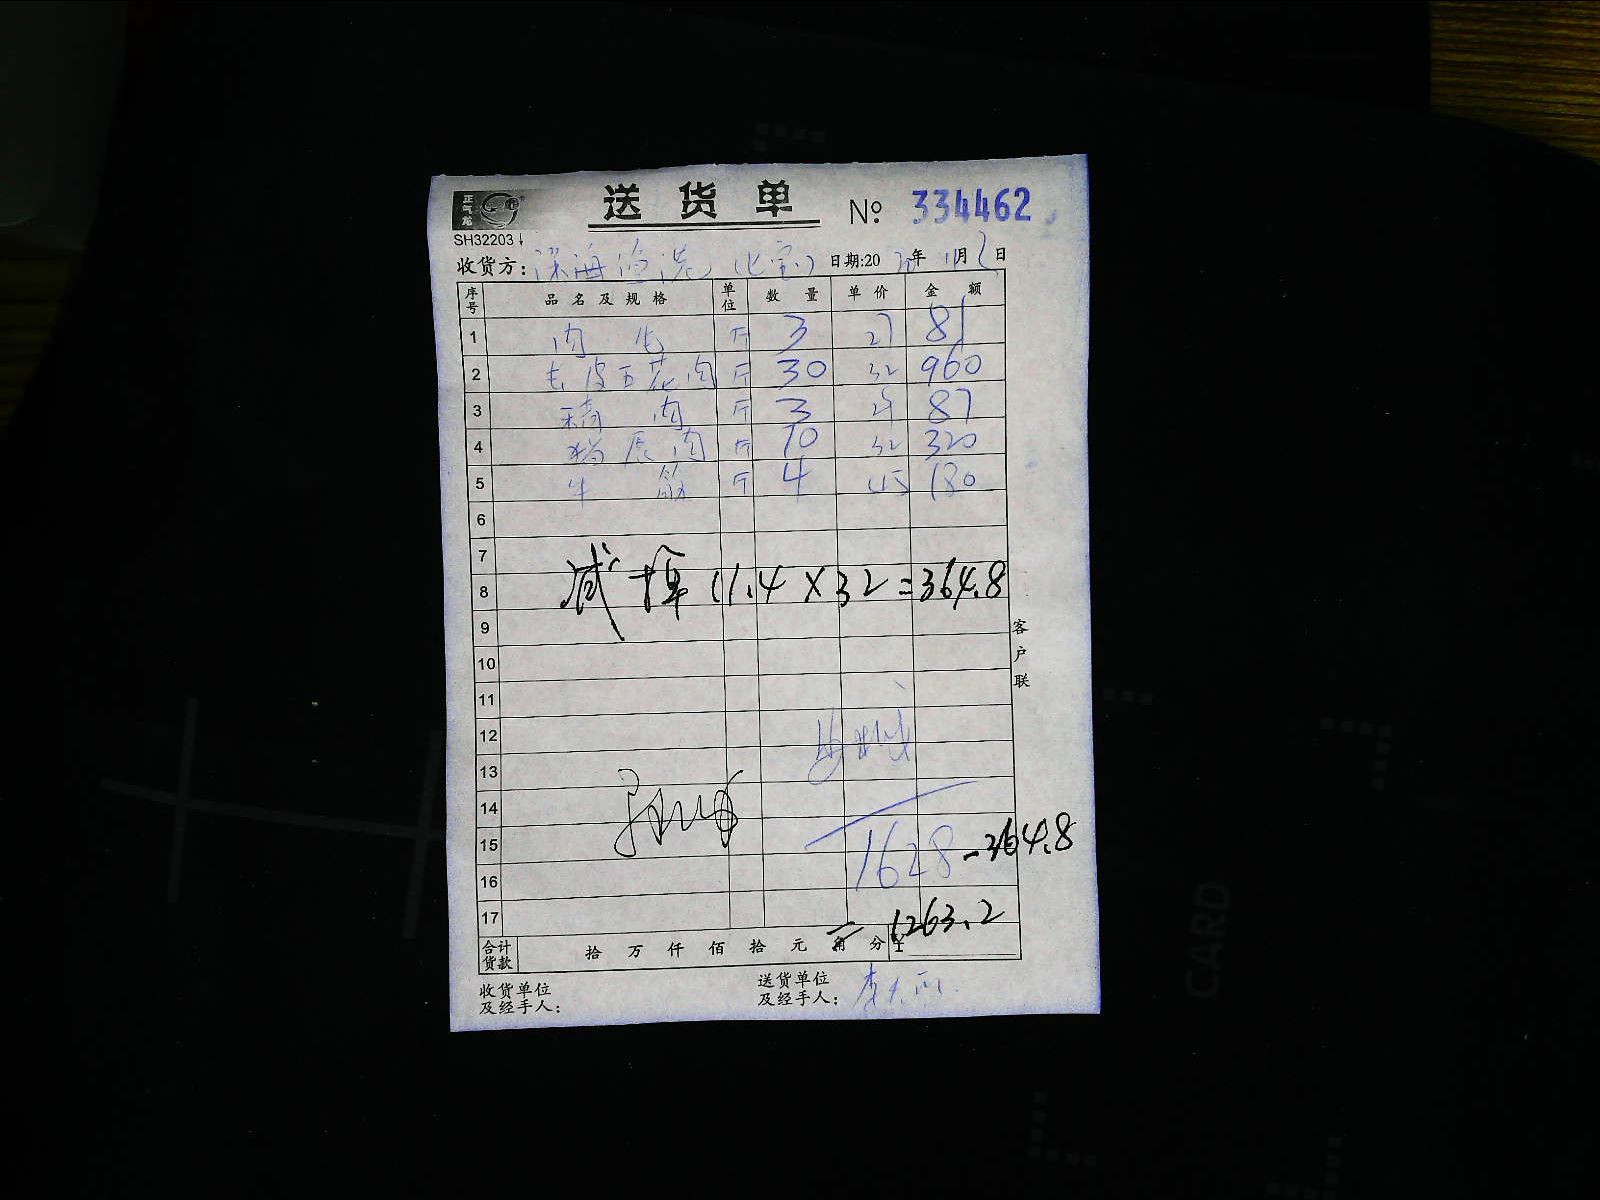 正气龙
送货单 № 334462
SH32203↓
收货方: 深海渔港 日期:20 年 11月2日
序号 品名及规格 单位 数量 单价 金额
1 肉 斤 3 27 81
2 去皮五花肉 斤 30 32 960
3 精肉 斤 3 29 87
4 猪展肉 斤 10 32 320
5 牛筋 斤 4 45 180
6
7
8 减掉 11.4×32=364.8
9
10
11
12
13
14
15 1628-364.8
16
17 1263.2
合计货款 拾 万 仟 佰 拾 元 角 分 ¥
收货单位及经手人:
送货单位及经手人: 李
客户联
CARD